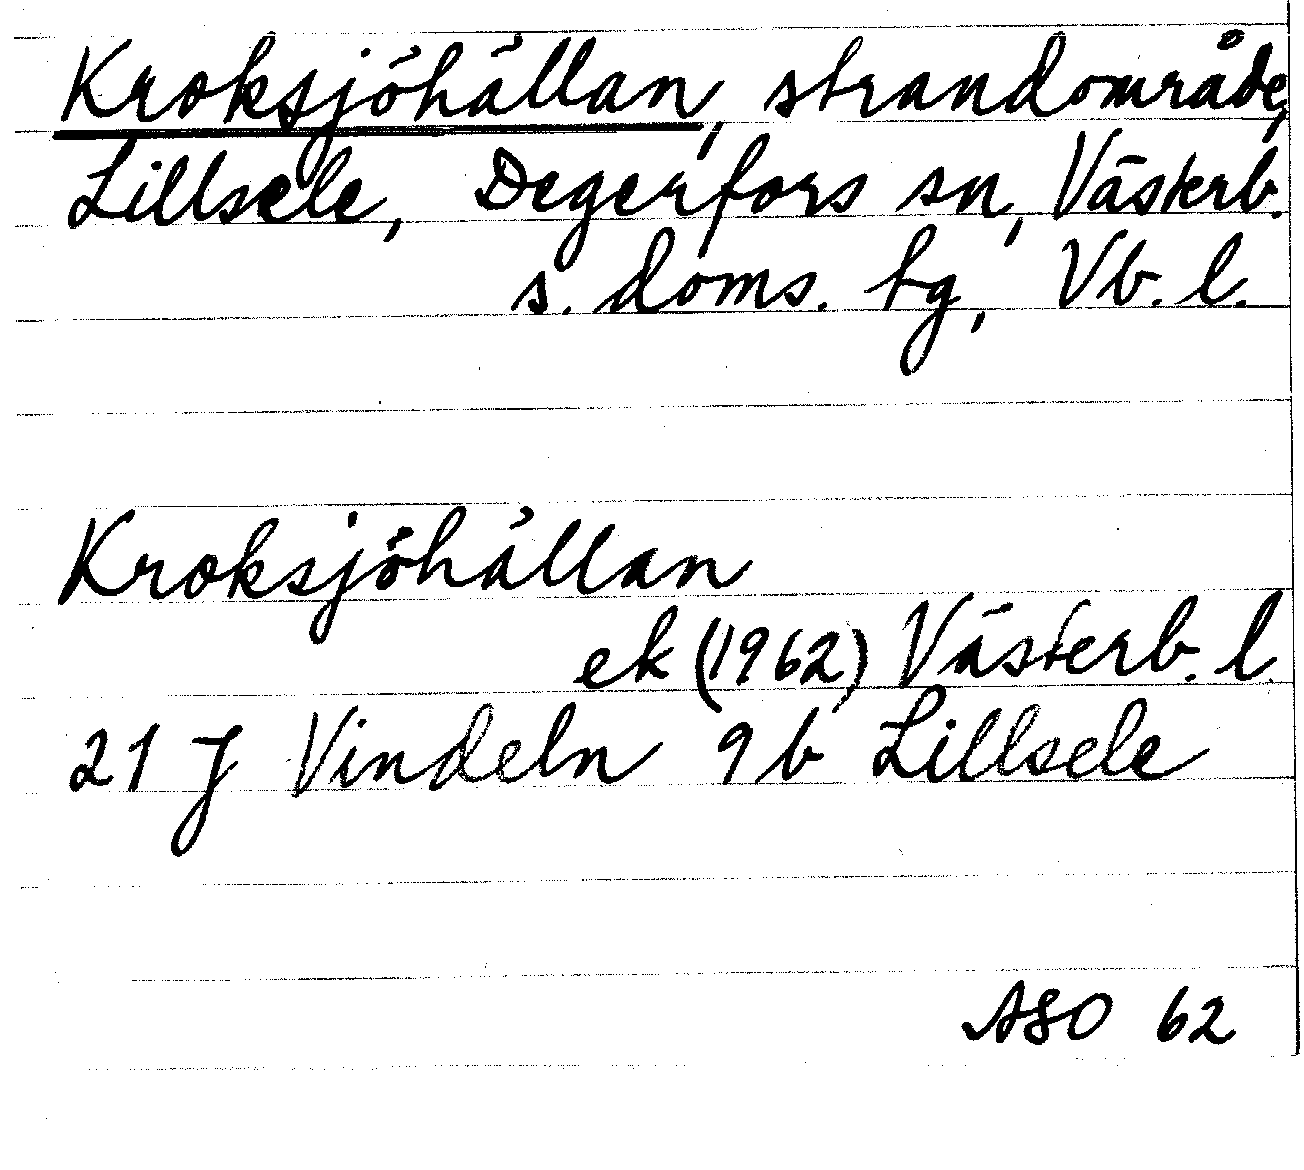 Kroksjöhällan, strandområde,
Lillsele, Degerfors sn, Västerb.
s. doms. tg, Vb. l.
Kroksjöhällan
ek (1962) Västerb. l.
21 J Vindeln 9b Lillsele
ASO 62